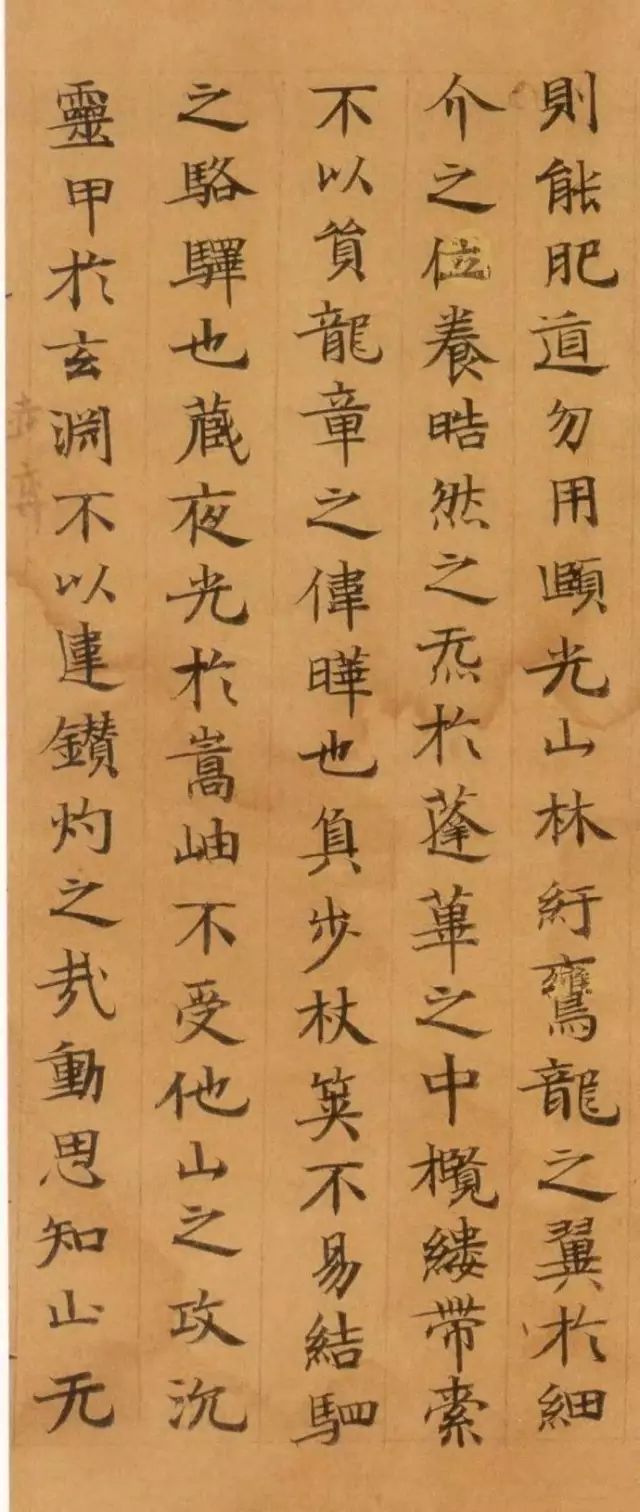 則能肥道勿用頤光山林紆鸞龍之翼於細
介之位養晧然之炁於蓬蓽之中欖縷帶索
不以貿龍章之偉曄也負步杖筴不易結駟
之駱驛也藏夜光於嵩岫不受他山之攻沉
靈甲於玄淵不以違鑽灼之烖動思知山无